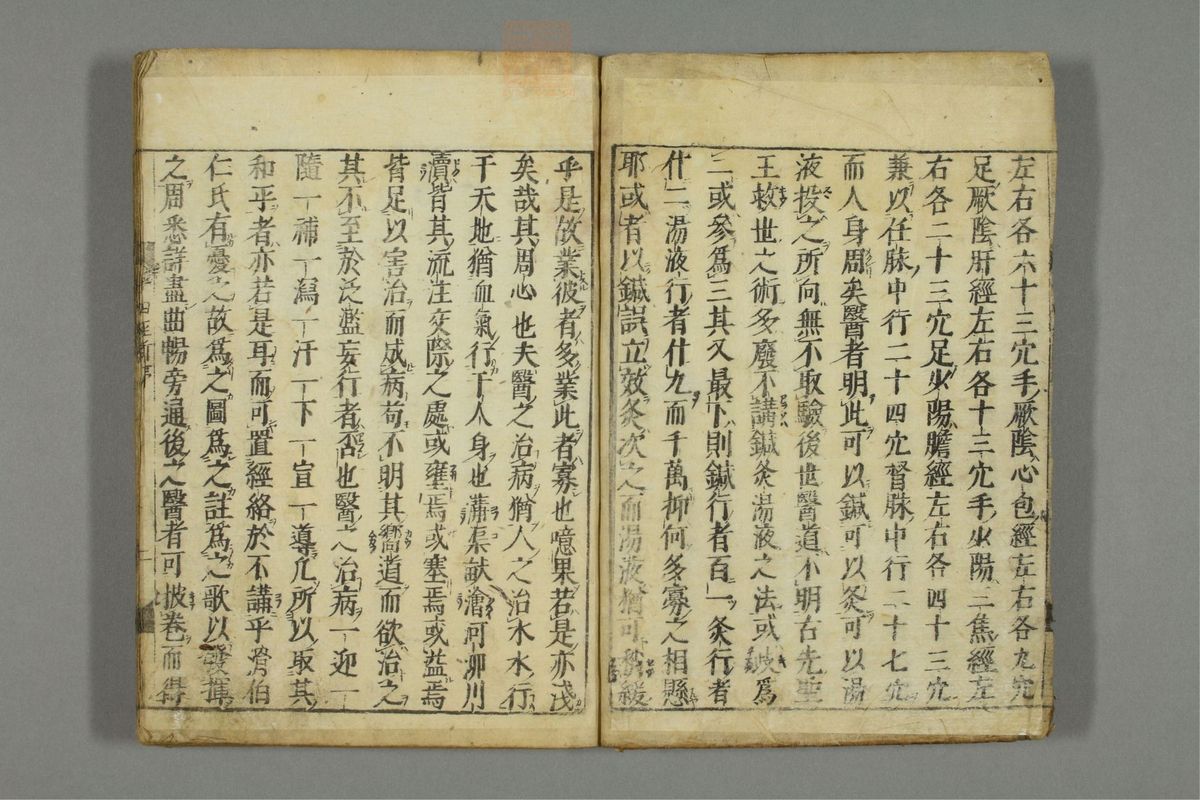 左右各六十三穴手厥陰心包經左右各九穴
足厥陰肝經左右各十三穴手少陽三焦經左
右各二十三穴足少陽膽經左右各四十三穴
兼以任脉中行二十四穴督脉中行二十七穴
而人身周矣醫者明此可以鍼可以灸可以湯
液投之所向無不取驗後世醫道不明古先聖
王救世之術多廢不講鍼灸湯液之法或歧爲
二或參爲三其又最下則鍼行者百一灸行者
什二湯液行者什九而千萬抑何多寡之相懸
耶或者以鍼誤立效灸次之而湯液猶可稍緩
乎是故業彼者多業此者寡也噫果若是亦淺
矣哉其周心也夫醫之治病猶人之治水水行
于天地猶血氣行于人身也溝渠畎澮河泖川
瀆皆其流注交際之處或壅焉或塞焉或益焉
皆足以害治而成病苟不明其嚮道而欲治之
其不至於泛濫妄行者否也醫之治病一迎一
隨一補一瀉一汗一下一宣一導凡所以取其
和乎者亦若是耳而可置經絡於不講乎滑伯
仁氏有憂之故爲之圖爲之註爲之歌以發揮
之周悉詳盡曲暢旁通後之醫者可披卷而得